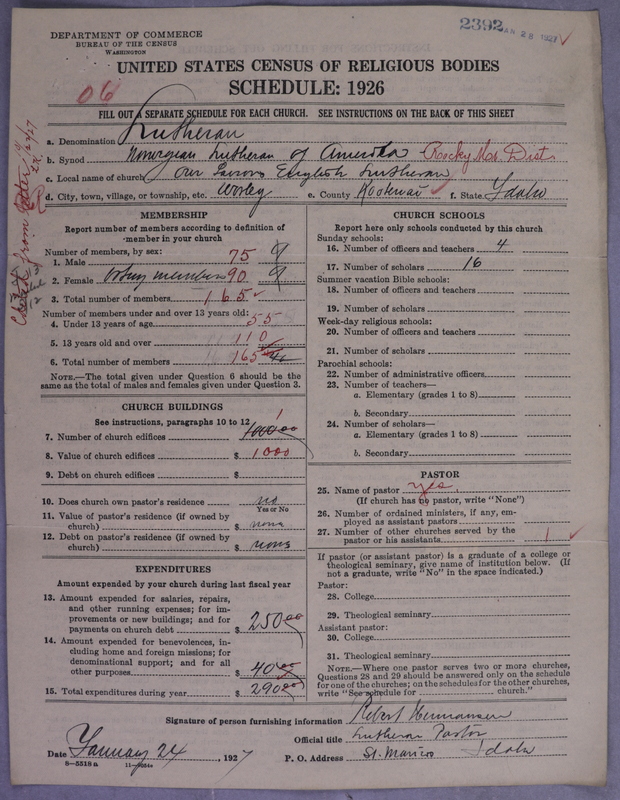 DEPARTMENT OF COMMERCE
BUREAU OF THE CENSUS
WASHINGTON
2392 JAN 28 1927
UNITED STATES CENSUS OF RELIGIOUS BODIES
SCHEDULE: 1926
06
FILL OUT A SEPARATE SCHEDULE FOR EACH CHURCH. SEE INSTRUCTIONS ON THE BACK OF THIS SHEET
a. Denomination Lutheran
b. Synod Norwegian Lutheran of America Rocky Mt. Dist.
c. Local name of church Our Saviors English Lutheran
d. City, town, village, or township, etc. Worley e. County Kootenai f. State Idaho
MEMBERSHIP
Report number of members according to definition of member in your church
Number of members, by sex:
1. Male 75
2. Female 90
3. Total number of members 165
Number of members under and over 13 years old:
4. Under 13 years of age 55
5. 13 years old and over 110
6. Total number of members 165
NOTE.—The total given under Question 6 should be the
same as the total of males and females given under Question 3.
CHURCH BUILDINGS
See instructions, paragraphs 10 to 12
7. Number of church edifices 1 1000.00
8. Value of church edifices $ 1000
9. Debt on church edifices $
10. Does church own pastor's residence no
Yes or No
11. Value of pastor's residence (if owned by
church) $ none
12. Debt on pastor's residence (if owned by
church) $ none
EXPENDITURES
Amount expended by your church during last fiscal year
13. Amount expended for salaries, repairs,
and other running expenses; for im-
provements or new buildings; and for
payments on church debt $ 250.00
14. Amount expended for benevolences, in-
cluding home and foreign missions; for
denominational support; and for all
other purposes $ 40.00
15. Total expenditures during year $ 290.00
CHURCH SCHOOLS
Report here only schools conducted by this church
Sunday schools:
16. Number of officers and teachers 4
17. Number of scholars 16
Summer vacation Bible schools:
18. Number of officers and teachers
19. Number of scholars
Week-day religious schools:
20. Number of officers and teachers
21. Number of scholars
Parochial schools:
22. Number of administrative officers
23. Number of teachers—
a. Elementary (grades 1 to 8)
b. Secondary
24. Number of scholars—
a. Elementary (grades 1 to 8)
b. Secondary
PASTOR
25. Name of pastor yes
(If church has no pastor, write "None")
26. Number of ordained ministers, if any, em-
ployed as assistant pastors
27. Number of other churches served by the
pastor or his assistants 1
If pastor (or assistant pastor) is a graduate of a college or
theological seminary, give name of institution below. (If
not a graduate, write "No" in the space indicated.)
Pastor:
28. College
29. Theological seminary
Assistant pastor:
30. College
31. Theological seminary
NOTE.—Where one pastor serves two or more churches,
Questions 28 and 29 should be answered only on the schedule
for one of the churches; on the schedules for the other churches,
write "See schedule for church."
Signature of person furnishing information Robert Hermansen
Official title Lutheran Pastor
Date January 24, 1927 P. O. Address St. Maries Idaho
8—5518 a